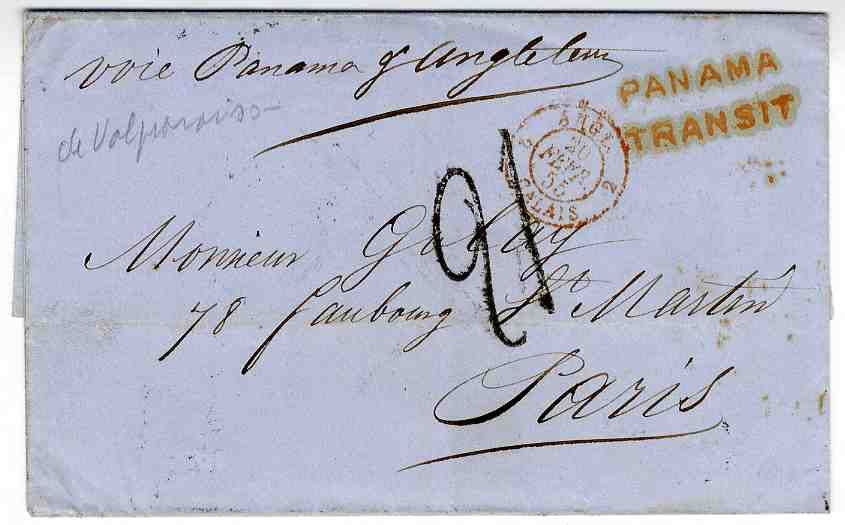 voie Panama & Angleterre
PANAMA
TRANSIT
de Valparaiso
ANGL.
20
FEVR.
55
CALAIS
2
21
Monsieur
78 faubourg St Martin
Paris